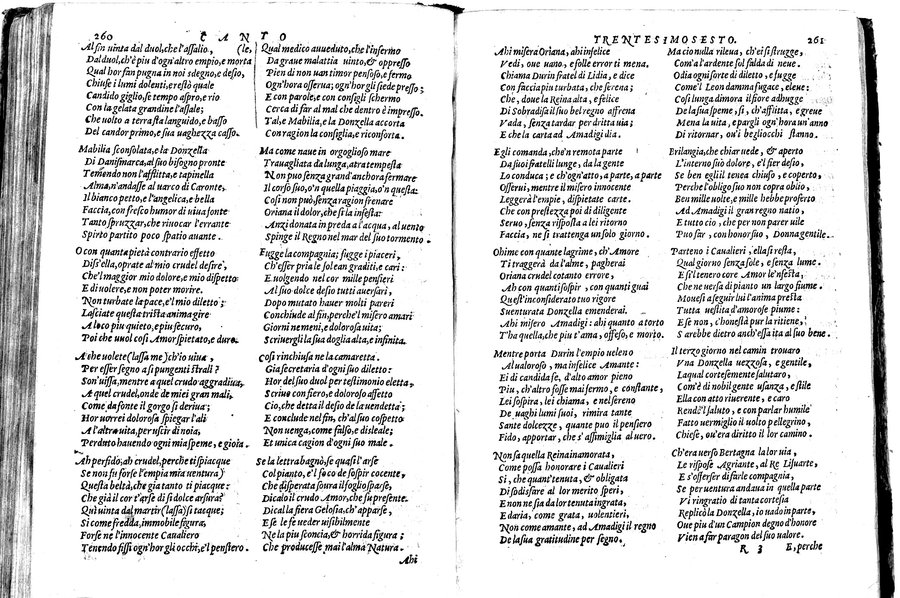 260
CANTO
Al fin uinta dal duol, che l'assalio,
(le,
Dal duol, ch'è piu d'ogn'altro empio, e morta
Qual hor san pugna in noi sdegno, e desio,
Che suole i lumi dolenti, e resta quale
Candido giglio, se tempo aspro, e rio
Con la gelata grandine l'assale;
Che uolto a terra sta languido, e basso
Del candor primo, e sua uaghezza casso.
Mabilia sconsolata, e la Donzella
Di Danismarca, al suo bisogno pronte
Temendo non l'afflitta, e tapinella
Alma, n'andasse al uarco di Caronte,
Il bianco petto, e l'angelica, e bella
Faccia, con fresco humor di uiua fonte
Tanto spruzzar, che riuocar l'errante
Spirto partito poco spatio auante.
O con quanta pietà contrario effetto
Diss'ella, oprate al mio crudel desire,
Che'l maggior mio dolore, e mio dispetto
E di uolere, e non poter morire.
Non turbate la pace, e'l mio diletto;
Lasciate questa trista anima gire
A loco piu quieto, e piu securo,
Poi che uuol cosi Amor spietato, e duro.
A che uolete (lassa me) ch'io uiua,
Per esser segno a sì pungenti strali?
Son'uissa, mentre a quel crudo aggradiua,
A quel crudel, onde de miei gran mali,
Come da fonte il gorgo si deriua;
Hor uorrei dolorosa spiegar l'ali
A l'altra uita, per uscir di noia,
Perduto hauendo ogni mia speme, e gioia.
Ah perfido, ah crudel, perche ti spiacque
Se non fu forse l'empia mia uentura)
Questa beltà, che già tanto ti piacque:
Che già il cor t'arse di sì dolce arsura?
Qui uinta dal martir (lassa) si tacque;
Si come fredda, immobile figura,
Forse nel'innocente Caualiero
Tenendo fissi ogn'hor gli occhi, e'l pensiero.
Qual medico aueduto, che l'infermo
Da graue malattia uinto, & oppresso
Pien di non uan timor pensoso, e fermo
Ogn'hora osserua; ogn'hor gli siede presso;
E con parole, e con consigli schermo
Cerca di far al mal che dentro è impresso.
Tal, e Mabilia, e la Donzella accorta
Con ragion la consiglia, e riconforta.
Ma come naue in orgoglioso mare
Trauagliata da lunga, atra tempesta
Non puo senza grand'anchora fermare
Il corso suo, o'n quella piaggia, o'n questa:
Cosi non può senza ragion frenare
Oriana il dolor, che sì la infesta:
Anzi donata in preda a l'acqua, al uento
Spinge il Regno nel mar del suo tormento.
Fugge la compagnia; fugge i piaceri,
Ch'esser pria le solean graditi, e cari:
E uolgendo nel cor mille pensieri
Al suo dolce desio tutti auersari,
Dopo mutato hauer molti pareri
Conchiude al fin, perche'l misero amari
Giorni ne meni, e dolorosa uita;
Scriuergli la sua doglia alta, e infinita.
Cosi rinchiusa ne la camaretta.
Già secretaria d'ogni suo diletto:
Hor del suo duol per testimonio eletta,
Scriue con fiero, e doloroso affetto
Cio, che detta il desio de la uendetta;
E conclude nel fin, ch'al suo cospetto
Non uenga, come falso, e disleale:
Et unica cagion d'ogni suo male.
Se la lettra bagnò, se quasi l'arse
Col pianto, e'l foco de sospir cocente,
Che disperata soura il foglio sparse,
Dicalo il crudo Amor, che fu presente.
Dical la fiera Gelosia, ch'apparse,
E se le fe ueder uisibilmente
Ne la piu sconcia, & horrida figura;
Che producesse mai l'alma Natura.
Ahi
TRENTESIMOSESTO.
261
Ahi misera Oriana, ahi infelice
Vedi, oue uano, e folle error ti mena.
Chiama Durin fratel di Lidia, e dice
Con faccia piu turbata, che serena;
Che, doue la Reina alta, e felice
Di Sobradisa il suo bel regno affrena
Vada, senza tardar per dritta uia;
E che la carta ad Amadigi dia.
Egli comanda, che'n remota parte
Da suoi fratelli lunge, da la gente
Lo conduca; e ch'ogn'atto, a parte, a parte
Osserui, mentre il misero innocente
Leggerà l'empie, dispietate carte.
Che con prestezza poi di diligente
Seruo, senza risposta a lei ritorno
Faccia, ne si trattenga un solo giorno.
Ohime con quante lagrime, ch'Amore
Ti traggerà da l'alme, pagherai
Oriana crudel cotanto errore,
Ah con quanti sospir, con quanti guai
Quest'inconsiderato tuo rigore
Suenturata Donzella emenderai.
Ahi misero Amadigi: ahi quanto a torto
T'ha quella, che piu t'ama, offeso, e morto.
Mentre porta Durin l'empio ueleno
Al ualoroso, ma infelice Amante:
Ei di candida fe, d'alto amor pieno
Piu, ch'altro fosse mai fermo, e constante,
Lei sospira, lei chiama, e nel sereno
De uaghi lumi suoi, rimira tante
Sante dolcezze, quante puo il pensiero
Fido, apportar, che s'assimiglia al uero.
Non sa quella Reina innamorata,
Come possa honorare i Caualieri
Si, che quant'è tenuta, & obligata
Di sodisfare al lor merito speri,
E non ne sia da lor tenuta ingrata,
E daria, come grata, uolentieri,
Non come amante, ad Amadigi il regno
De la sua gratitudine per segno.
Ma cio nulla rileua, ch'ei si strugge,
Com'a l'ardente sol falda di neue.
Odia ogni sorte di diletto, e fugge
Come'l Leon damma fugace, e leue:
Cosi lunga dimora il fiore adhugge
De la sua speme, sì, ch'afflitta, e greue
Mena la uita, e pargli ogn'hora un'anno
Di ritornar, ou'i begliocchi stanno.
Erilangia, che chiar uede, & aperto
L'interno suo dolore, e'l fier desio,
Se ben egli'l tenea chiuso, e coperto,
Perche l'obligo suo non copra obio,
Ben mille uolte, e mille hebbe proferto
Ad Amadigi il gran regno natio,
E tutto cio, che per non parer uile
Puo far, con honor suo, Donna gentile.
Parteno i Caualieri, ella si resta,
Qual giorno senza sole, e senza lume.
E s'il tenero care Amor le'nfesta,
Che ne uersa di pianto un largo fiume.
Mouesi a seguir lui l'anima presta
Tutta uestita d'amorose piume:
E se non, c'honestà pur la ritiene,
Sarebbe dietro anch'essa ita al suo bene.
Il terzo giorno nel camin trouaro
Vna Donzella uezzosa, e gentile,
La qual cortesemente salutaro,
Com'è di nobil gente usanza, e stile
Ella con atto riuerente, e caro
Rendè'l saluto, e con parlar humile
Fatto uermiglio il uolto pellegrino,
Chiese, ou'era diritto il lor camino.
Ch'era uerso Bertagna la lor uia,
Le rispose Agriante, al Re Lisuarte,
E s'offerser di farle compagnia,
Se per uentura andaua in quella parte
Vi ringratio di tanta cortesia
Replicò la Donzella, io uado in parte,
Oue piu d'un Campion degno d'honore
Vien a far paragon del suo ualore.
R 3
E, perche